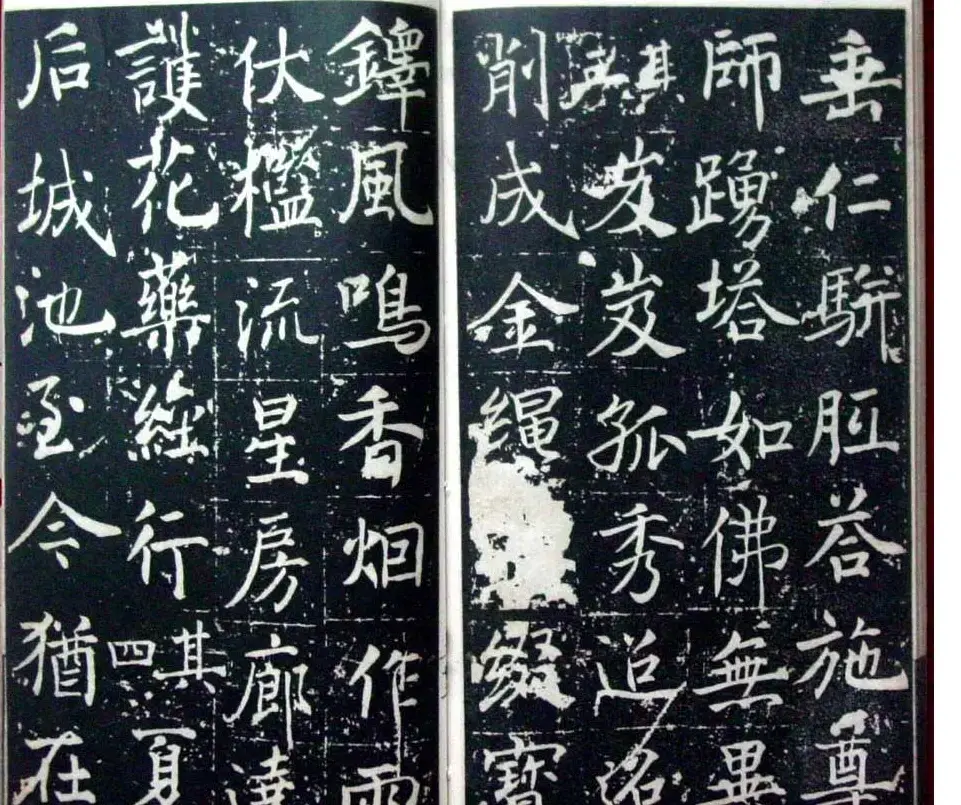 垂仁駢胝荅施尊
師踴塔如佛無畢
其三岌岌孤秀迢
削成金繩綴寶
鐸風鳴香烟作雨
伏檻流星房廊遶
護花藥經行其四夏
后城池至今猶在